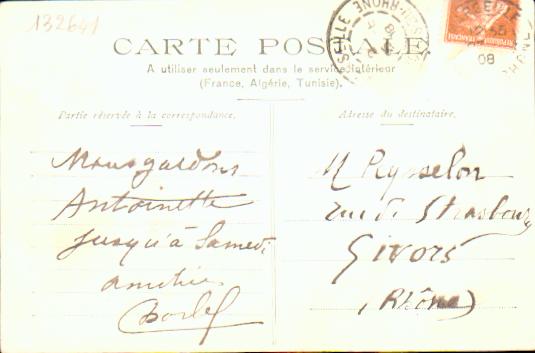 132641
CARTE POSTALE
A utiliser seulement dans le service intérieur
(France, Algérie, Tunisie).
Partie réservée à la correspondance.
Adresse du destinataire.
Nous gardons
Antoinette
jusqu'à Samedi
amitiés
M Peysselon
rue de Strasbourg
Givors
(Rhône)
08